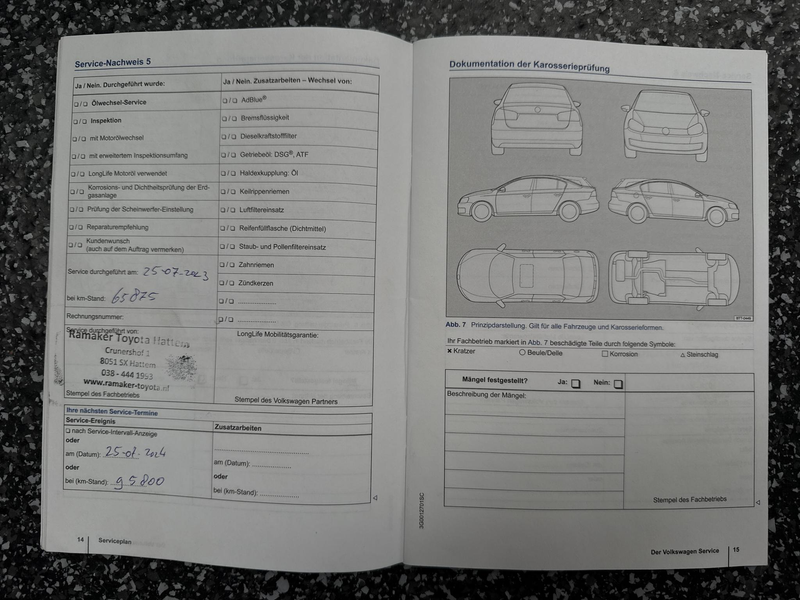 Service-Nachweis 5
Ja / Nein. Durchgeführt wurde:
❏ / ❏ Ölwechsel-Service
❏ / ❏ Inspektion
❏ / ❏ mit Motorölwechsel
❏ / ❏ mit erweitertem Inspektionsumfang
❏ / ❏ LongLife Motoröl verwendet
❏ / ❏ Korrosions- und Dichtheitsprüfung der Erd-
gasanlage
❏ / ❏ Prüfung der Scheinwerfer-Einstellung
❏ / ❏ Reparaturempfehlung
❏ / ❏ Kundenwunsch
(auch auf dem Auftrag vermerken)
Service durchgeführt am: 25-07-2023
bei km-Stand: 65875
Rechnungsnummer:
Service durchgeführt von:
Ramaker Toyota Hattem
Crunershof 1
8051 SX Hattem
038 - 444 1993
www.ramaker-toyota.nl
Stempel des Fachbetriebs
Ja / Nein. Zusatzarbeiten – Wechsel von:
❏ / ❏ AdBlue®
❏ / ❏ Bremsflüssigkeit
❏ / ❏ Dieselkraftstofffilter
❏ / ❏ Getriebeöl: DSG®, ATF
❏ / ❏ Haldexkupplung: Öl
❏ / ❏ Keilrippenriemen
❏ / ❏ Luftfiltereinsatz
❏ / ❏ Reifenfüllflasche (Dichtmittel)
❏ / ❏ Staub- und Pollenfiltereinsatz
❏ / ❏ Zahnriemen
❏ / ❏ Zündkerzen
❏ / ❏ ....................
❏ / ❏ ....................
LongLife Mobilitätsgarantie:
Stempel des Volkswagen Partners
Ihre nächsten Service-Termine
Service-Ereignis
❏ nach Service-Intervall-Anzeige
oder
am (Datum): 25-07-2024
oder
bei (km-Stand): 95800
Zusatzarbeiten
am (Datum): ....................
oder
bei (km-Stand): ....................
14 Serviceplan
Dokumentation der Karosserieprüfung
Abb. 7 Prinzipdarstellung. Gilt für alle Fahrzeuge und Karosserieformen.
Ihr Fachbetrieb markiert in Abb. 7 beschädigte Teile durch folgende Symbole:
✕ Kratzer ○ Beule/Delle □ Korrosion △ Steinschlag
Mängel festgestellt? Ja: ❏ Nein: ❏
Beschreibung der Mängel:
Stempel des Fachbetriebs
Der Volkswagen Service 15